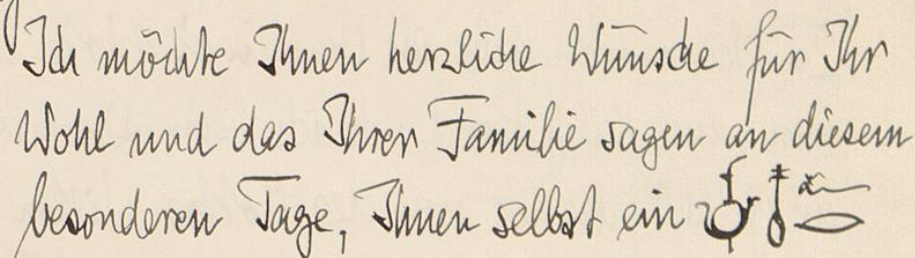 Ich möchte Ihnen herzliche Wünsche für Ihr
Wohl und das Ihrer Familie sagen an diesem
besonderen Tage, Ihnen selbst ein